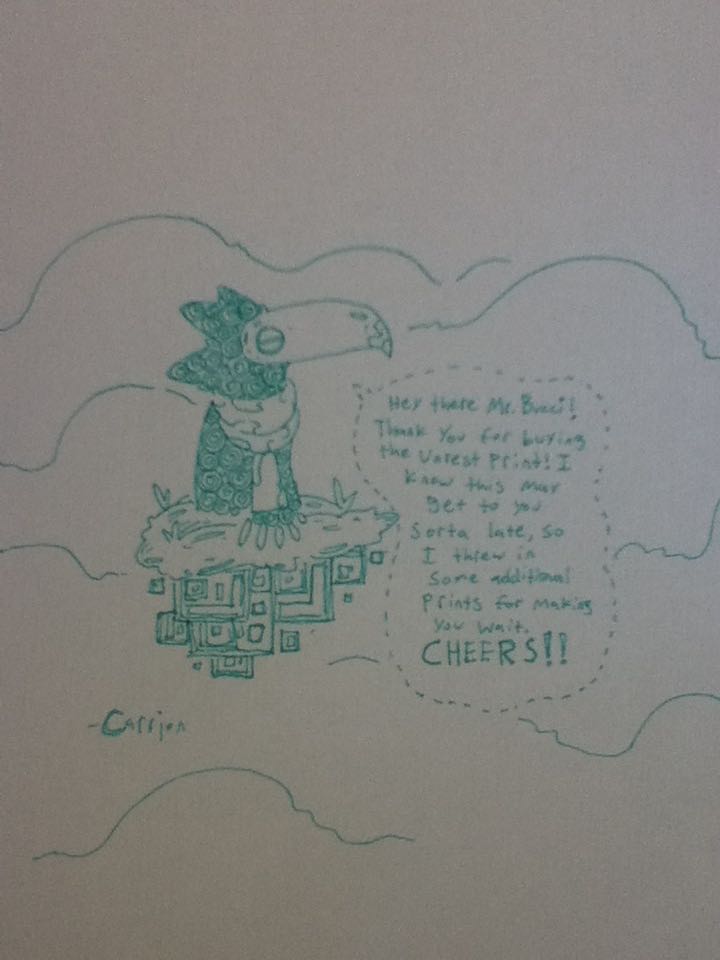 Hey there Mr. Bucci!
Thank You for buying
the Unrest Print! I
know this may
get to you
sorta late, so
I threw in
some additional
Prints for making
you wait.
CHEERS!!
-Carrion